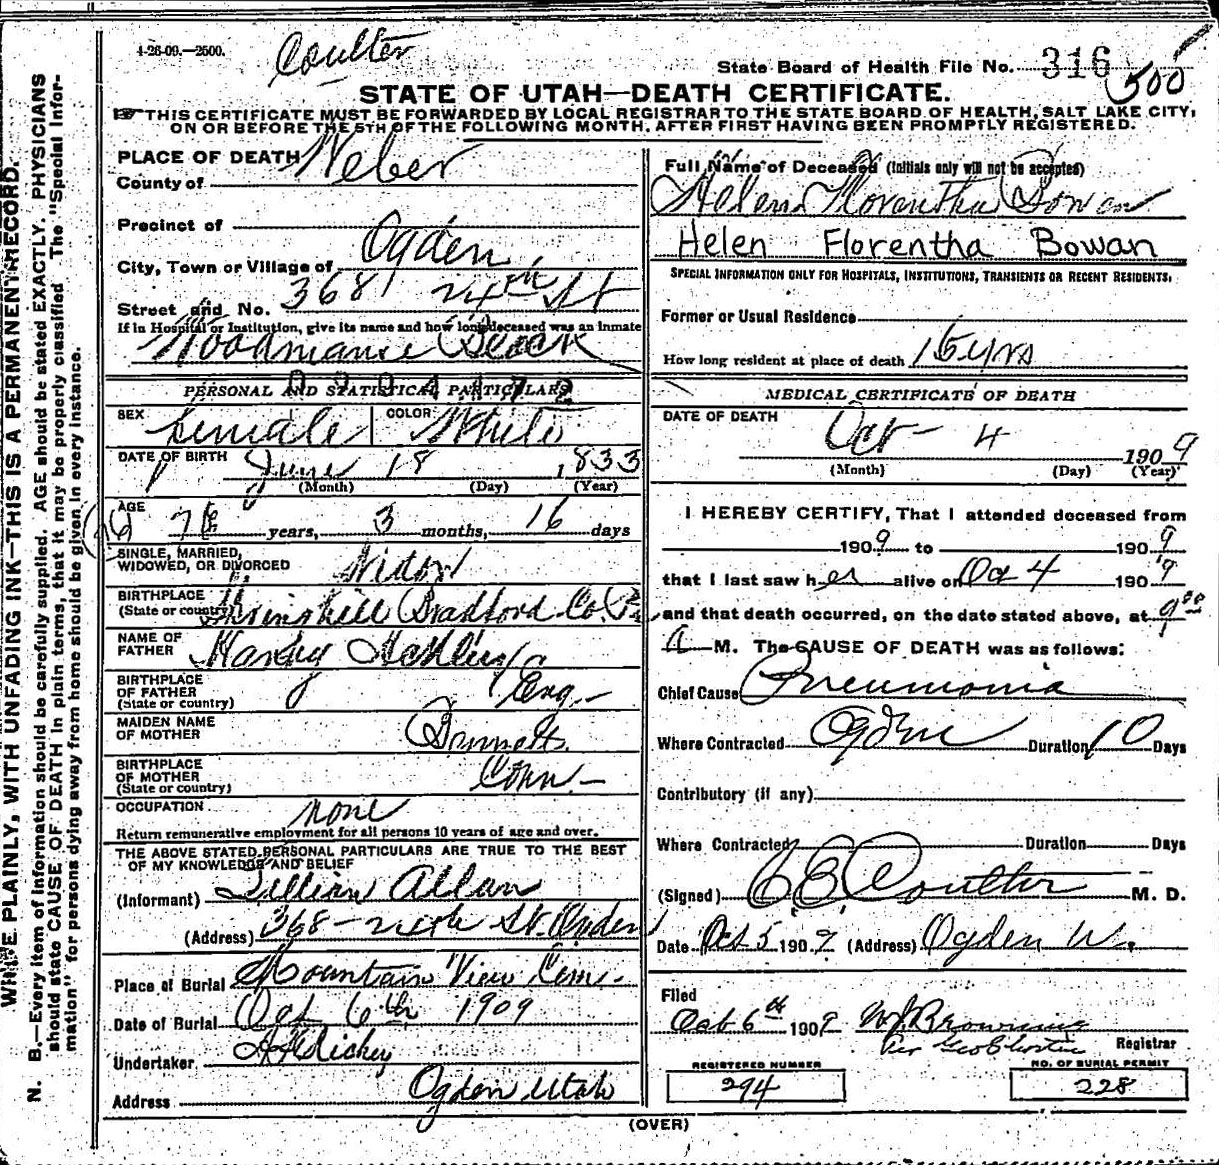 4-26-09.—2500.
Coulter
State Board of Health File No. 316
500
STATE OF UTAH—DEATH CERTIFICATE.
THIS CERTIFICATE MUST BE FORWARDED BY LOCAL REGISTRAR TO THE STATE BOARD OF HEALTH, SALT LAKE CITY,
ON OR BEFORE THE 5TH OF THE FOLLOWING MONTH. AFTER FIRST HAVING BEEN PROMPTLY REGISTERED.
WRITE PLAINLY, WITH UNFADING INK—THIS IS A PERMANENT RECORD.
N. B.—Every item of information should be carefully supplied. AGE should be stated EXACTLY. PHYSICIANS
should state CAUSE OF DEATH in plain terms, that it may be properly classified. The "Special Infor-
mation" for persons dying away from home should be given in every instance.
PLACE OF DEATH
County of Weber
Precinct of
City, Town or Village of Ogden
Street and No. 368 24th St
If in Hospital or Institution, give its name and how long deceased was an inmate
Woodmansee Block
PERSONAL AND STATISTICAL PARTICULARS
SEX Female COLOR White
DATE OF BIRTH June 18, 1833
(Month) (Day) (Year)
AGE 76 years, 3 months, 16 days
SINGLE, MARRIED,
WIDOWED, OR DIVORCED Widow
BIRTHPLACE
(State or country) Springhill Bradford Co. Pa
NAME OF
FATHER Harry
BIRTHPLACE
OF FATHER
(State or country) Eng.—
MAIDEN NAME
OF MOTHER
BIRTHPLACE
OF MOTHER
(State or country) Conn.—
OCCUPATION none
Return remunerative employment for all persons 10 years of age and over.
THE ABOVE STATED PERSONAL PARTICULARS ARE TRUE TO THE BEST
OF MY KNOWLEDGE AND BELIEF
(Informant) Lillian Allan
(Address) 368—24th St. Ogden
Place of Burial Mountain View Cem.
Date of Burial Oct 6th 1909
Undertaker Richey
Address Ogden Utah
Full Name of Deceased (Initials only will not be accepted)
Helen Florentha Bowan
Helen Florentha Bowan
SPECIAL INFORMATION ONLY FOR HOSPITALS, INSTITUTIONS, TRANSIENTS OR RECENT RESIDENTS.
Former or Usual Residence
How long resident at place of death 15 yrs
MEDICAL CERTIFICATE OF DEATH
DATE OF DEATH
Oct— 4 1909
(Month) (Day) (Year)
I HEREBY CERTIFY, That I attended deceased from
1909 to 1909
that I last saw her alive on Oct 4 1909
and that death occurred, on the date stated above, at 9 00
A M. The CAUSE OF DEATH was as follows:
Chief Cause Pneumonia
Where Contracted Ogden Duration 10 Days
Contributory (if any)
Where Contracted Duration Days
(Signed) C E Coulter M. D.
Date Oct 5 1909 (Address) Ogden U.
Filed
Oct 6th 1909 W J Browning
Registrar
REGISTERED NUMBER
294
NO. OF BURIAL PERMIT
228
(OVER)